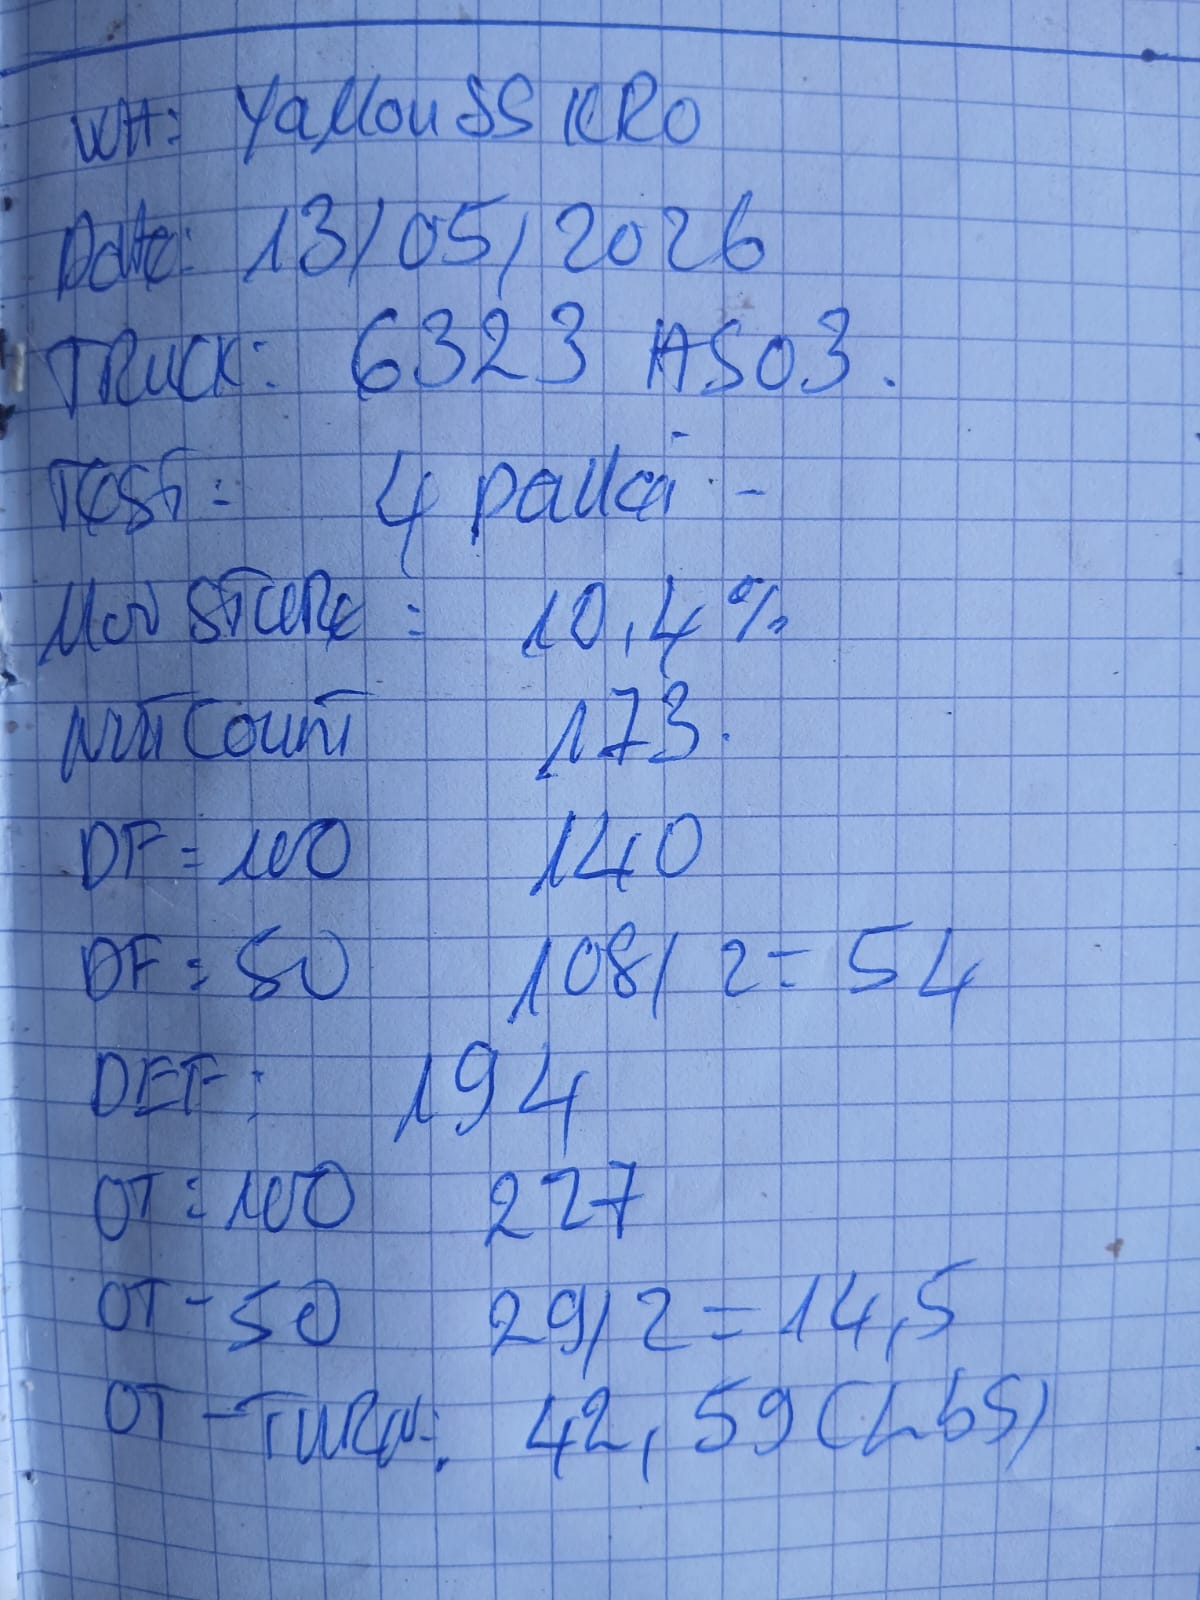 WH: YaMouSSKRO
Date: 13/05/2026
TRUCK: 6323 AS03.
TEST: 4 pallei -
MoiSTURe: 10,4%
NUTCount 173.
DF=100 140
DF=50 108/2=54
DEF: 194
OT=100 227
OT-50 29/2=14,5
OT-TURN: 42,59(LbS)